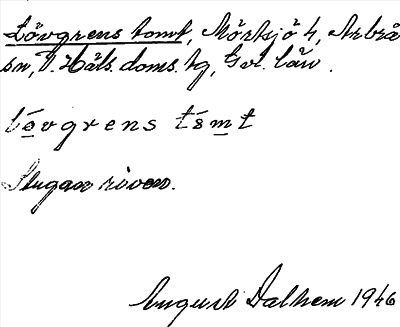 Lövgrens tomt, Mörtsjö h, Arbrå
sn, V. Häls. doms. tg, Gvl. län.
lö̲vgrens tɷ́m̲t
Stugan riven.
August Dalhem 1946